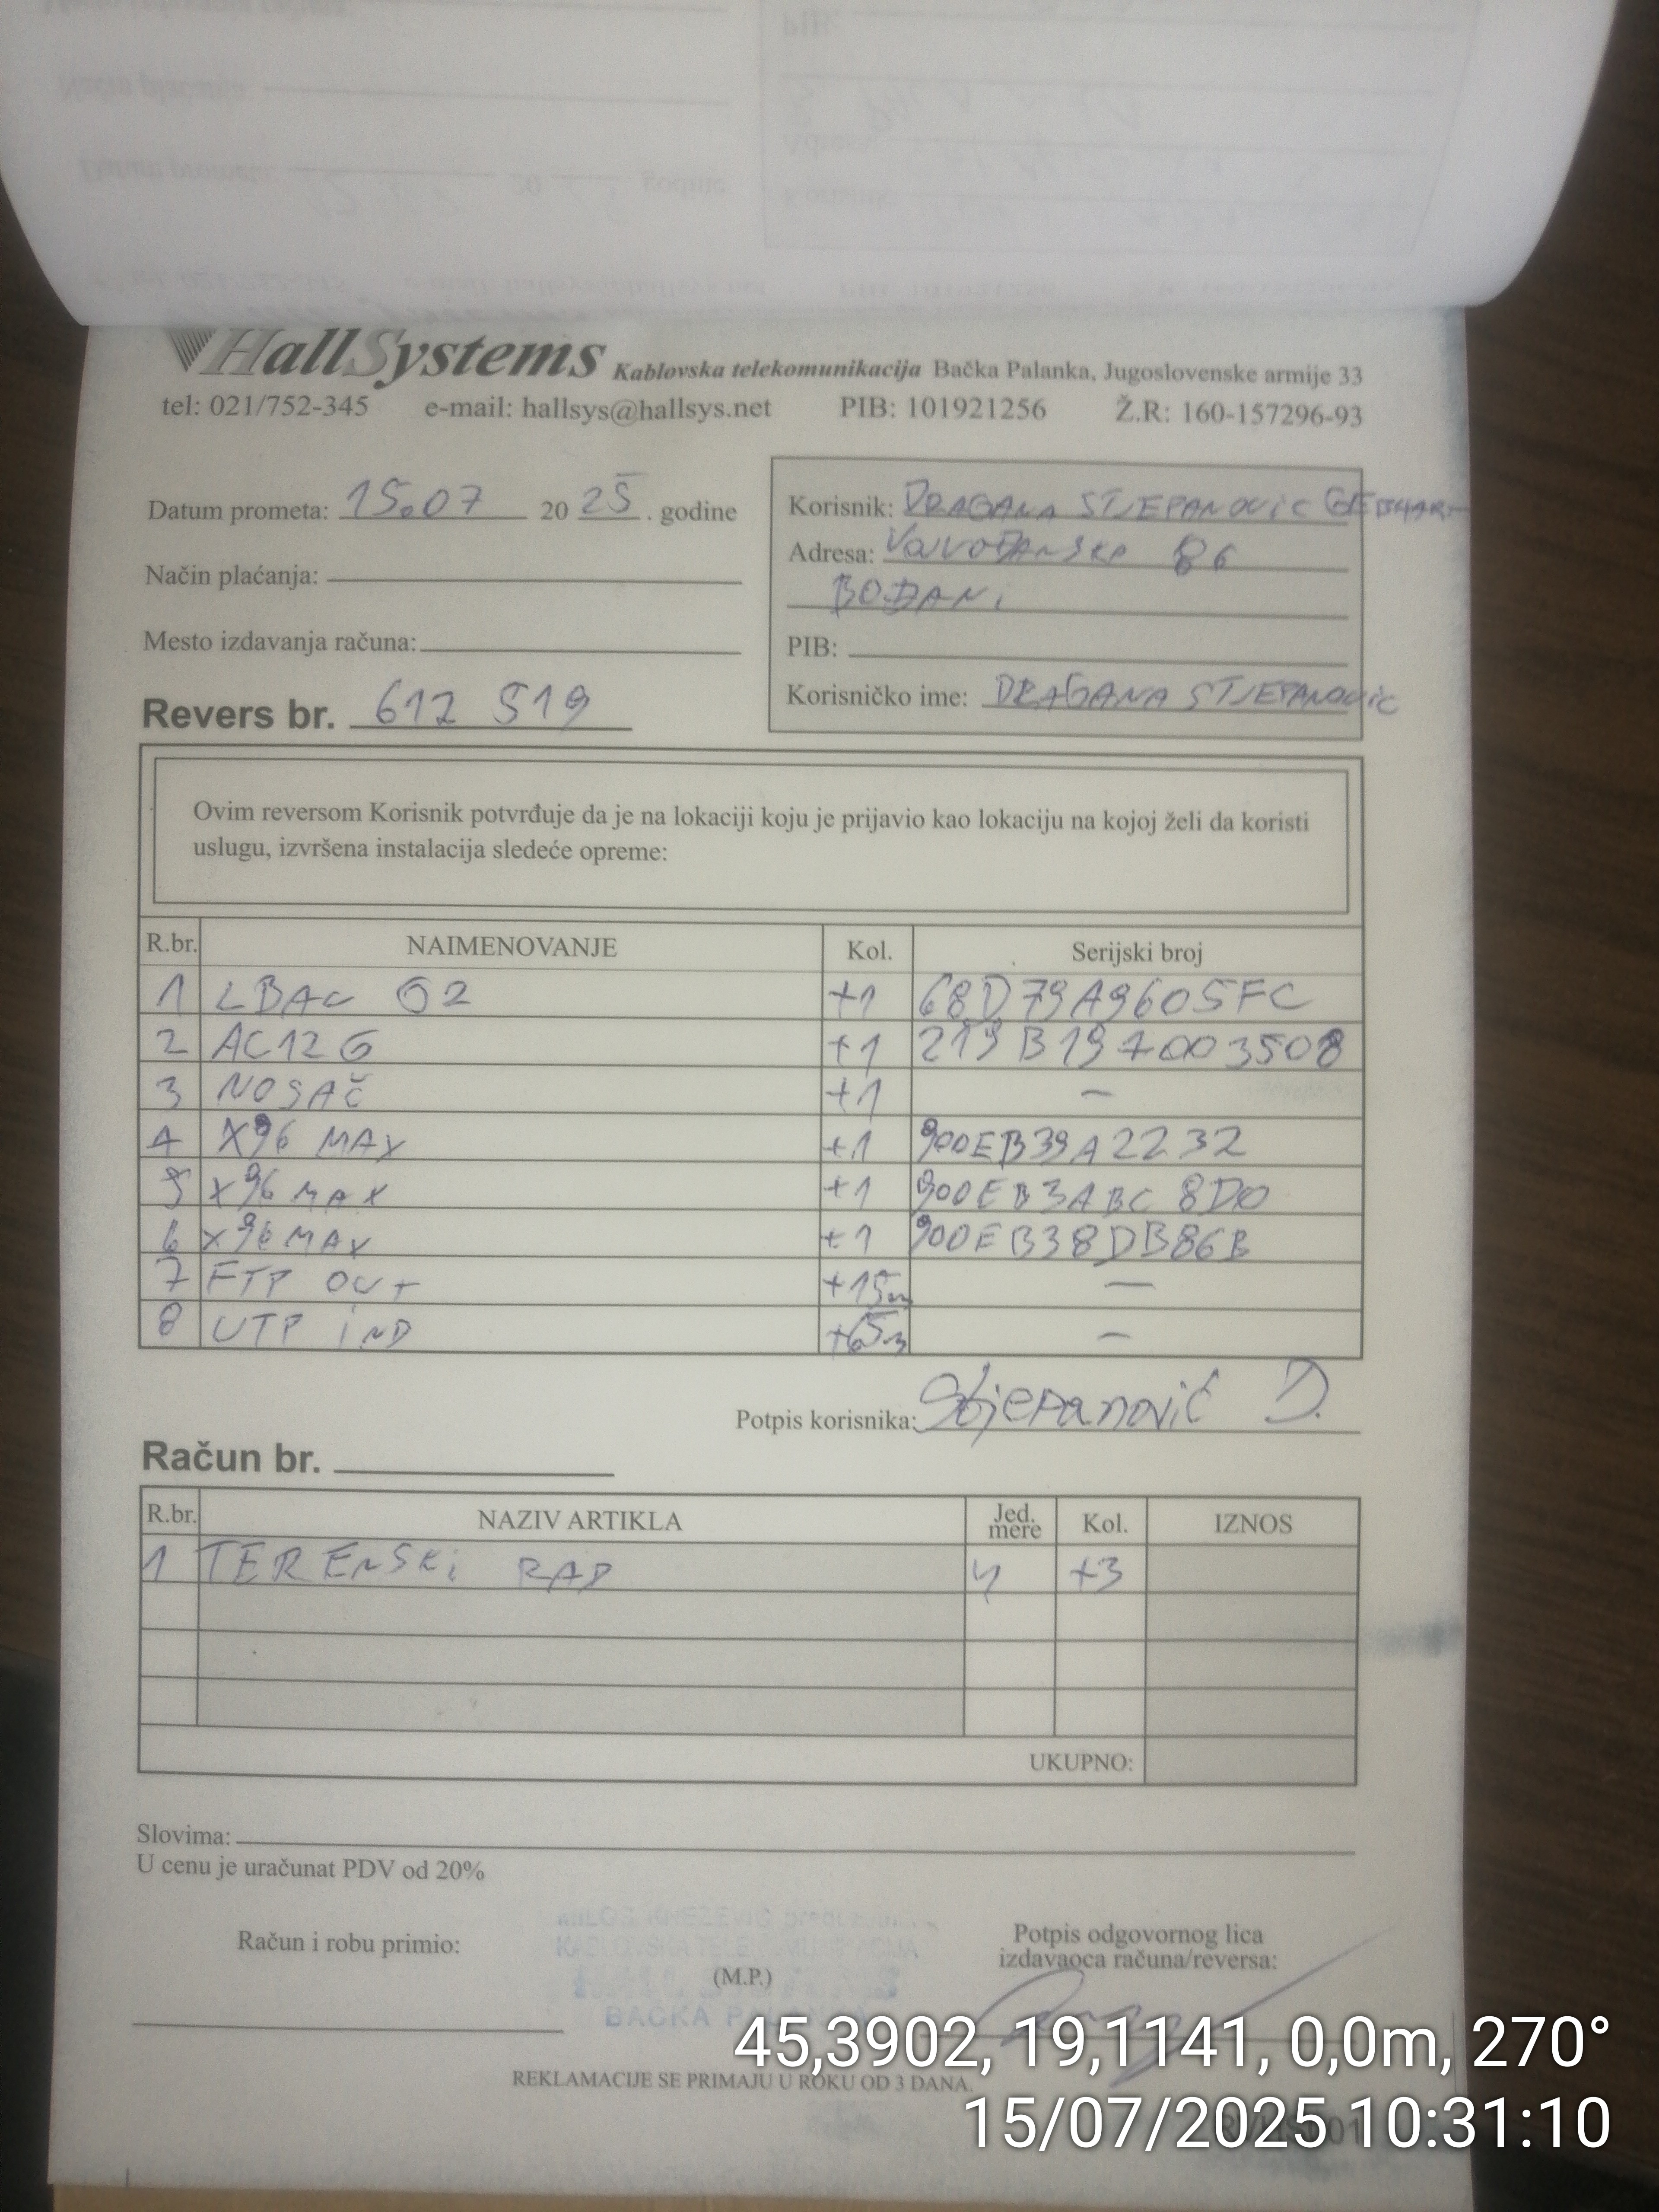 HallSystems Kablovska telekomunikacija Bačka Palanka, Jugoslovenske armije 33
tel: 021/752-345 e-mail: hallsys@hallsys.net PIB: 101921256 Ž.R: 160-157296-93
Datum prometa: 15.07 2025. godine
Način plaćanja:
Mesto izdavanja računa:
Revers br. 612 519
Korisnik: DRAGANA STJEPANOVIC
Adresa: VOJVOĐANSKA 86
BOĐANI
PIB:
Korisničko ime: DRAGANA STJEPANOVIC
Ovim reversom Korisnik potvrđuje da je na lokaciji koju je prijavio kao lokaciju na kojoj želi da koristi
uslugu, izvršena instalacija sledeće opreme:
R.br. NAIMENOVANJE Kol. Serijski broj
1 LBAC G2 +1 68D79A9605FC
2 AC12G +1 219B197003508
3 NOSAČ +1 —
4 X96 MAX +1 900EB39A2232
5 X96 MAX +1 900EB3ABC8D0
6 X96 MAX +1 900EB38DB86B
7 FTP OUT +15m —
8 UTP IND +65m —
Potpis korisnika: Stjepanović D.
Račun br.
R.br. NAZIV ARTIKLA Jed. mere Kol. IZNOS
1 TERENSKI RAD Č +3
UKUPNO:
Slovima:
U cenu je uračunat PDV od 20%
Račun i robu primio:
(M.P.)
BAČKA PALANKA
Potpis odgovornog lica
izdavaoca računa/reversa:
REKLAMACIJE SE PRIMAJU U ROKU OD 3 DANA.
45,3902, 19,1141, 0,0m, 270°
15/07/2025 10:31:10